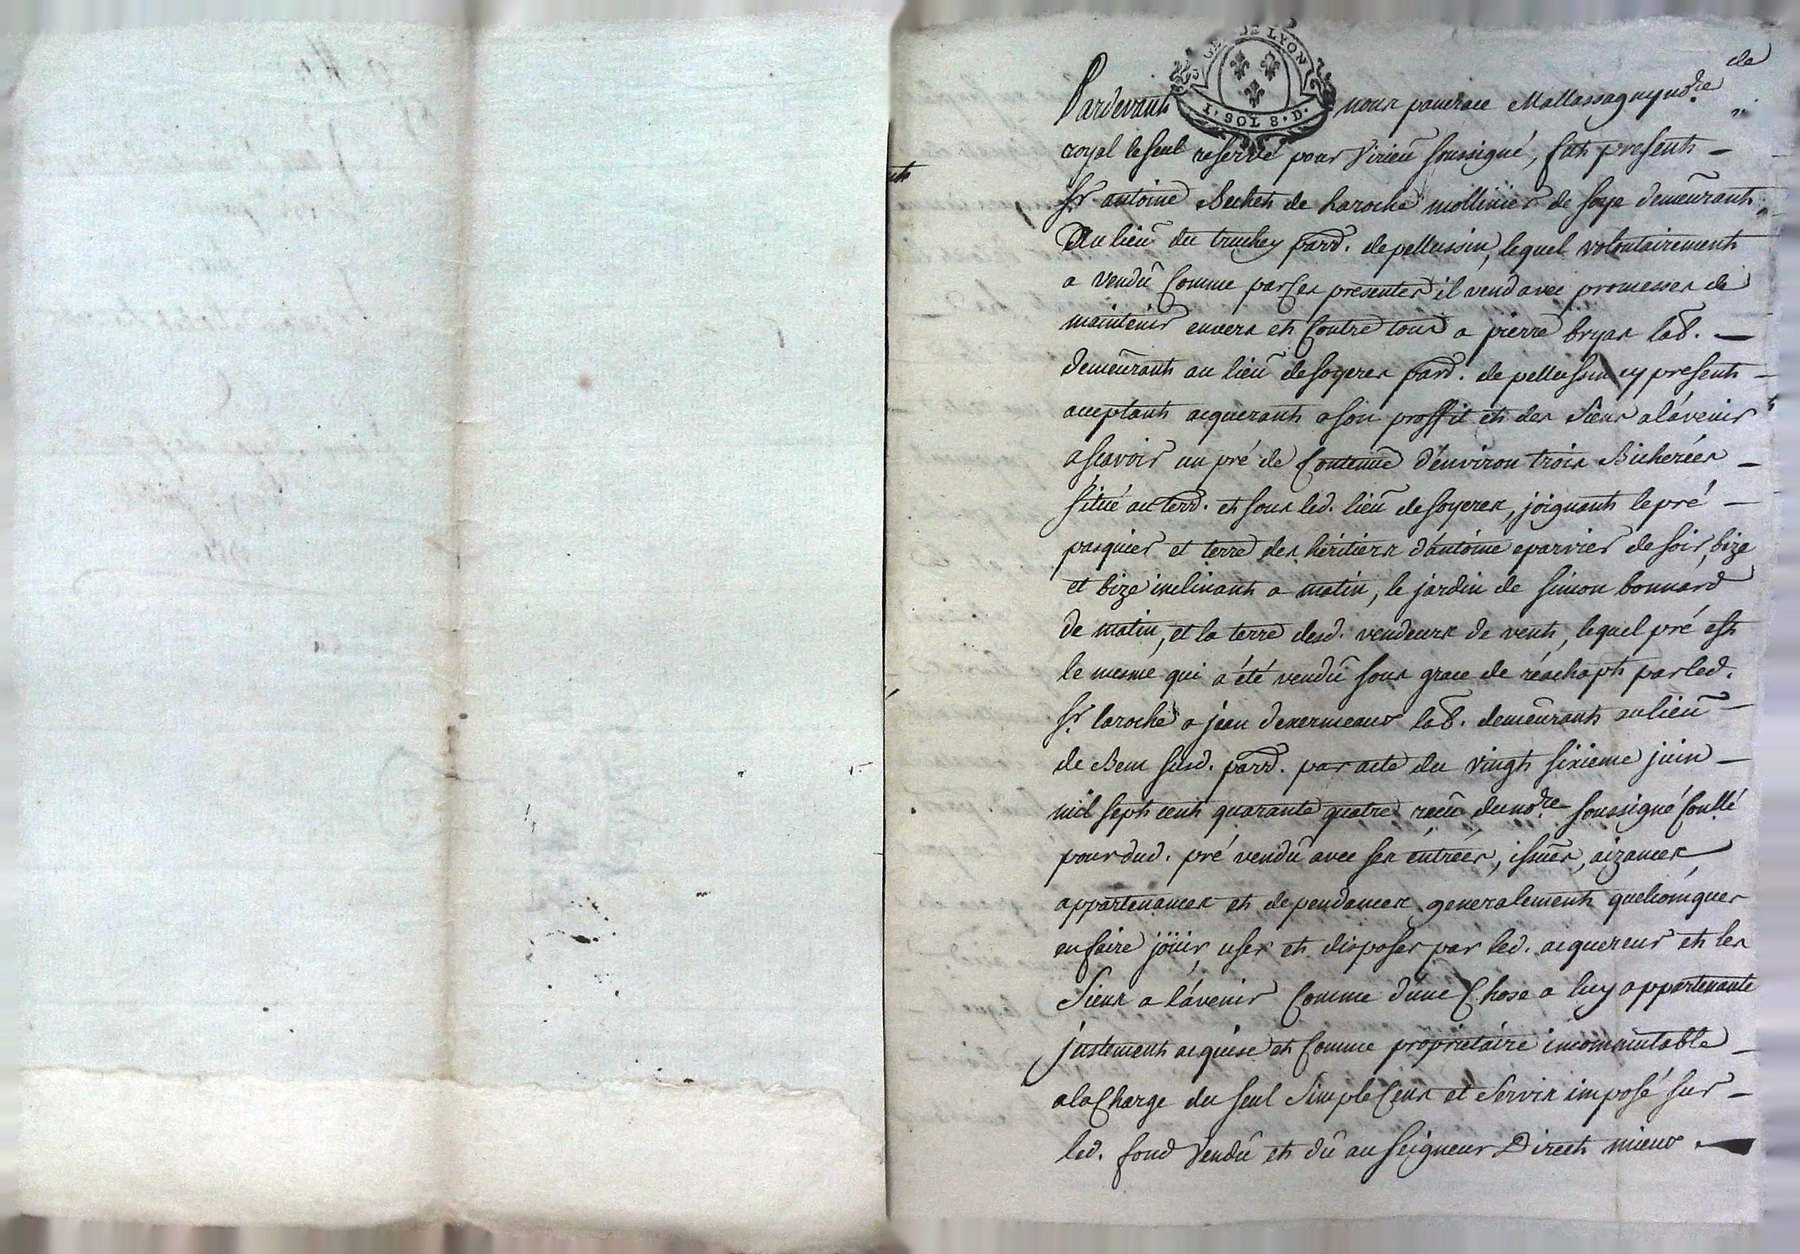 GEN. DE LYON
1. SOL 8. D.
de
Pardevant nous pancrace Mallassagny no.re
royal le seul reservé pour Virieu soussigné, fut present
Sr. antoine Bechet de Laroche mollinier de soye demeurant
Au lieu du truchey parr. de pellussin, lequel volontairement
a vendû Comme par Ces presentes il vend avec promesses de
maintenir envers et Contre tous a pierre bryas lab.
demeurant au lieu de soyeres parr. de pellussin cy present
acceptant acquerant a son proffit et des Siens a l'avenir
a scavoir un pré de Contenue d'environ trois Bicherées
situé au terr. et sous led. lieu de soyeres, joignant le pré
pasquier et terre des héritiers d'antoine eparvier de soir, bize
et bize inclinant a matin, le jardin de simon bonnard
de matin, et la terre desd. vendeurs de vent, lequel pré est
le mesme qui a été vendû sous grace de réachapt par led.
Sr. laroche a jean dexermeaux lab. demeurant au lieu
de Bem susd. parr. par acte du vingt sixieme juin
mil sept cent quarante quatre recu du no.re soussigné Con.llé
pour dud. pré vendû avec ses entrées, issues, aizances
appartenances et dependances generalement quelconques
en faire joüir, user et disposer par led. acquereur et les
Siens a l'avenir Comme d'une Chose a luy appartenante
justement acquise et Comme propriétaire incommutable
a la Charge du seul Simple Cens et Servis imposé sur
led. fond Vendû et dû au Seigneur Direct mieux